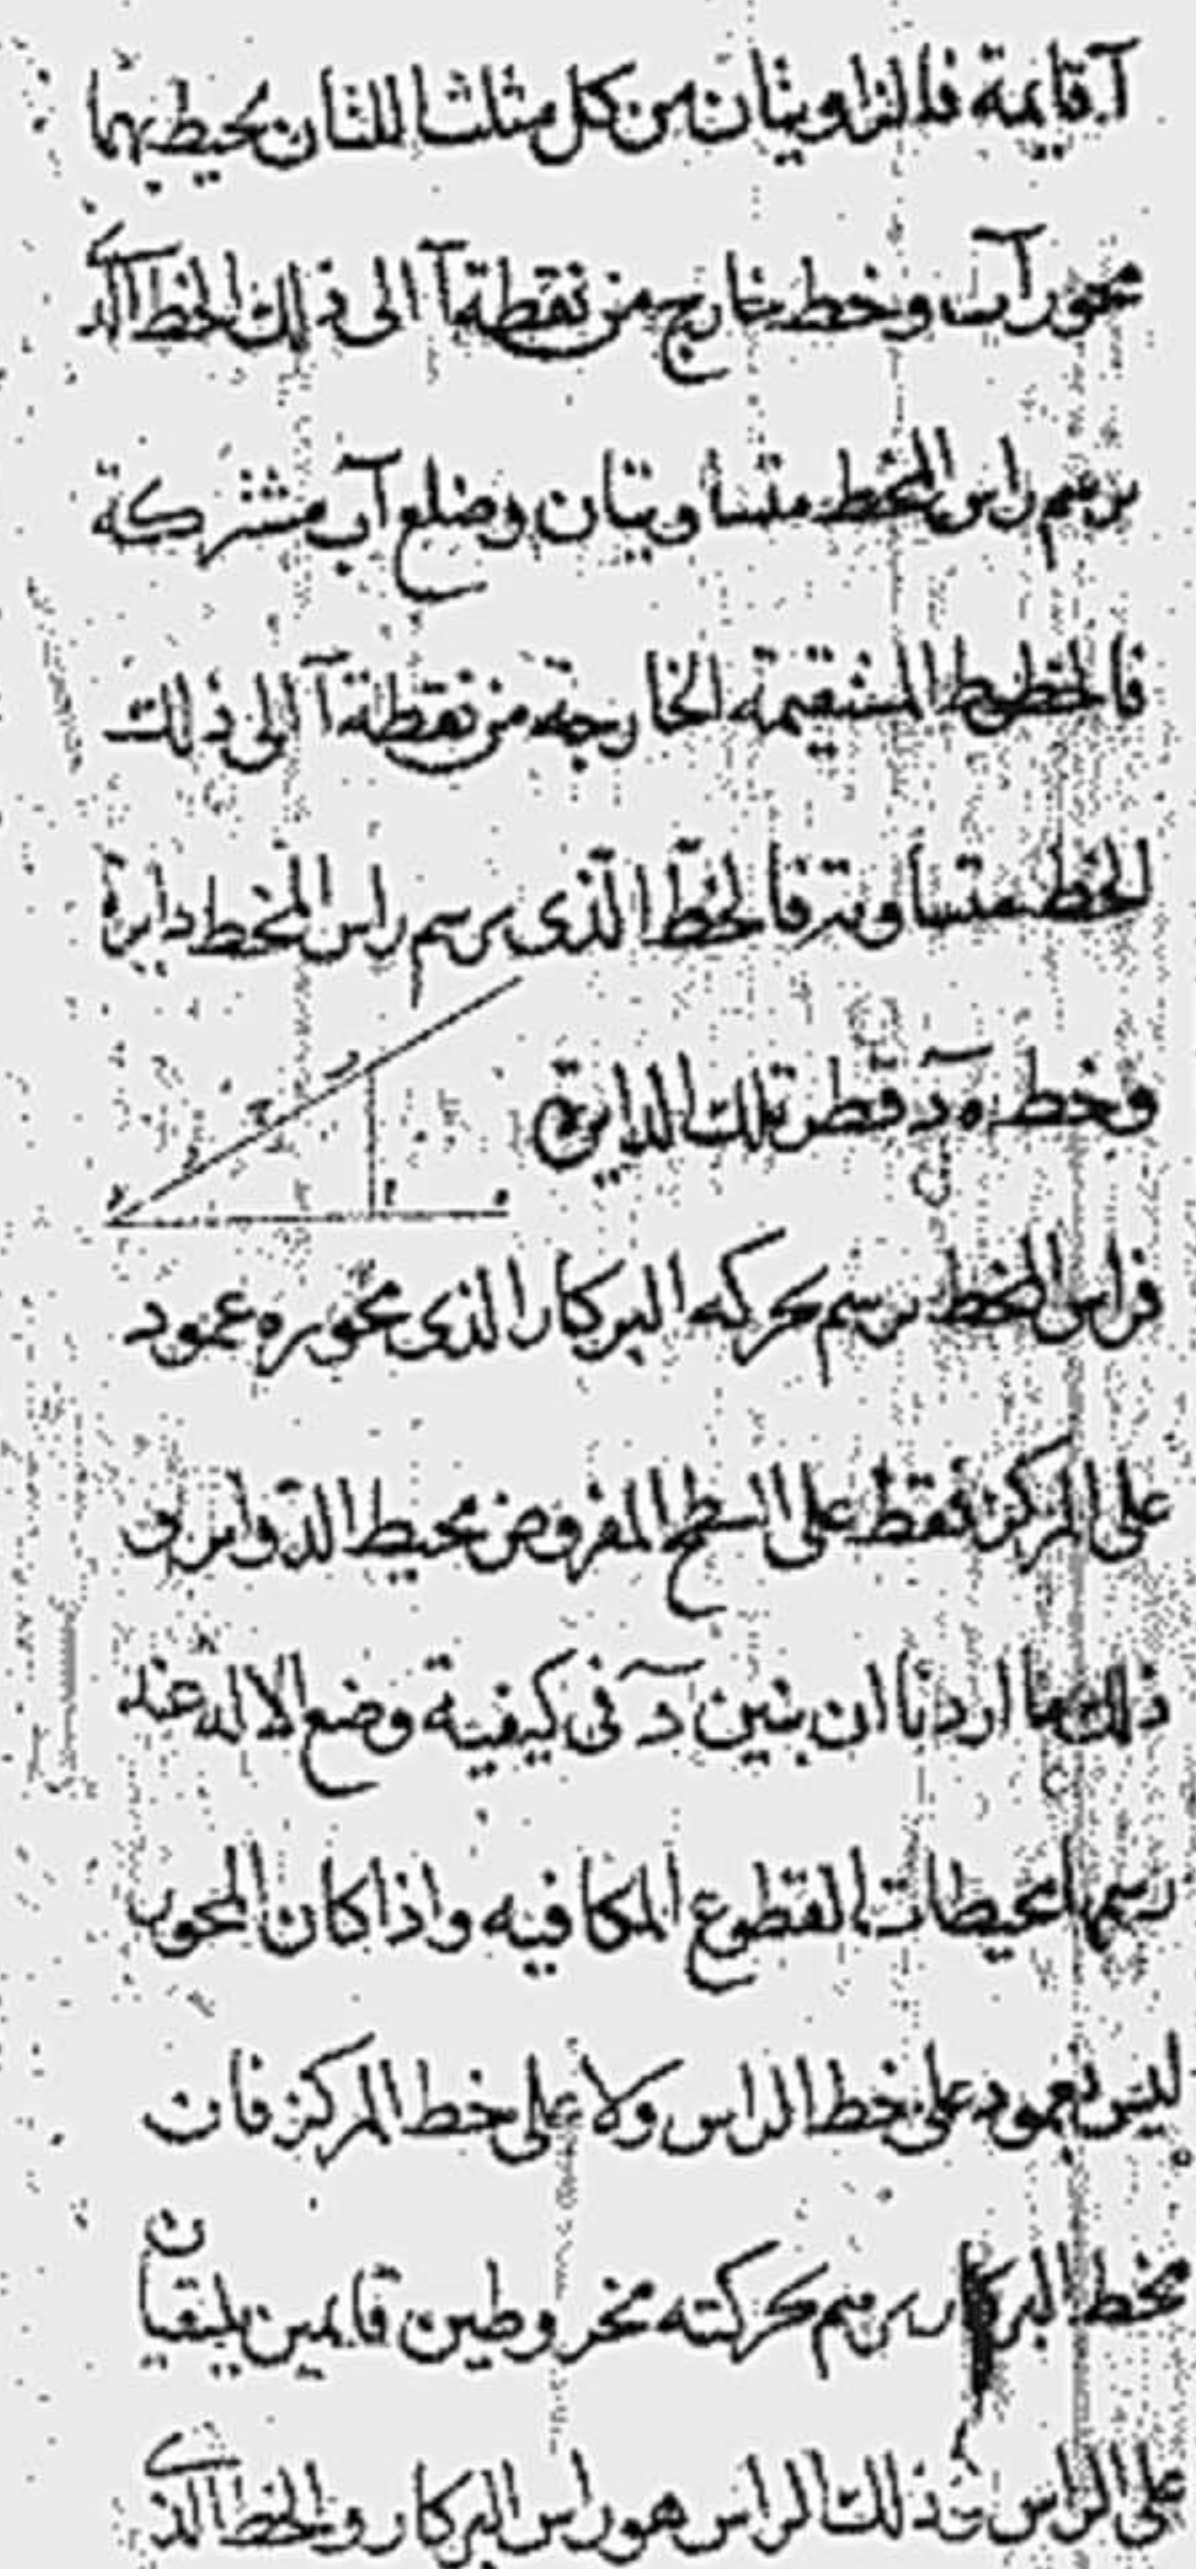 آ قايمة فالزاويتان من كل مثلثا اللتان يحيط بهما
محور آب وخط خارج من نقطة آ الى ذلك الخط الذي
يرسم راس المخط متساويتان وضلع آب مشتركة
فالخطوط المستقيمة الخارجة من نقطة آ الى ذلك
الخط متساوية فالخط الذي يرسم راس المخط دايرة
وخط ه د قطر تلك الدايرة
فراس المخط يرسم بحركه البركار الذى محوره عمود
على المركز فقط على السطح المفروض محيط الدواير و
ذلك ما اردنا ان نبين د في كيفية وضع الالة عند
رسمها محيطات القطوع المكافيه واذا كان المحور
ليس بعمود على خط الراس ولا على خط المركز فان
مخط البركار يرسم بحركته مخروطين قايمين يلتقيان
على الراس ذلك الراس هو راس البركار والخط الذي